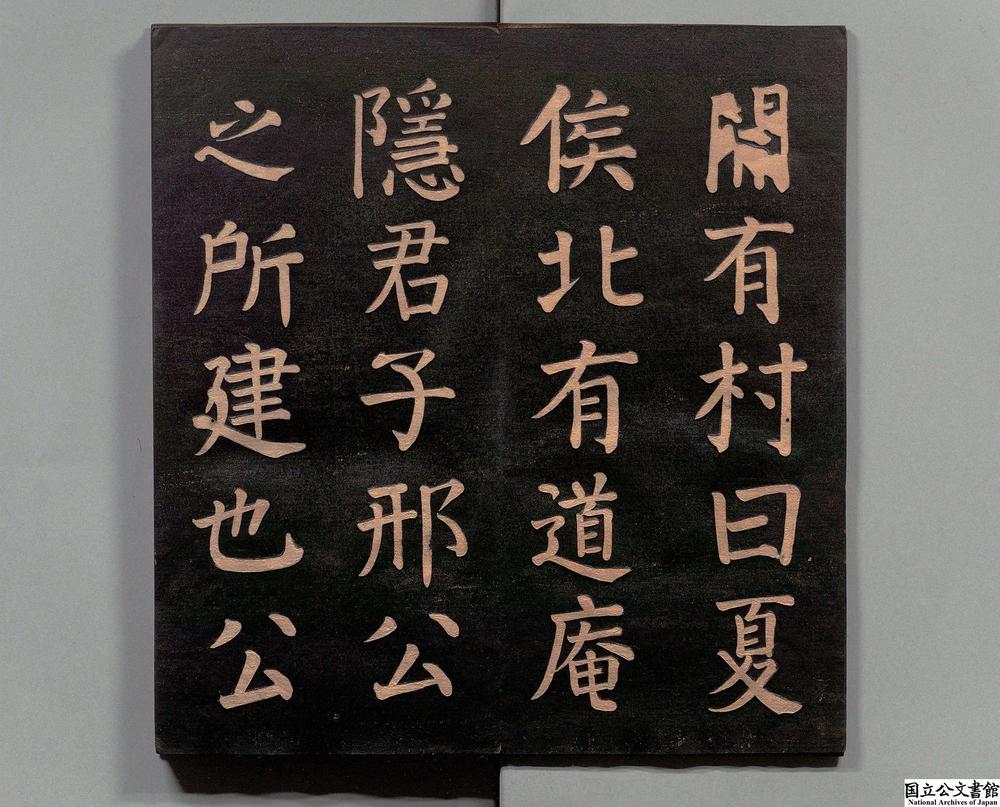 有村曰夏
侯北有道庵
隱君子邢公
之所建也公
国立公文書館
National Archives of Japan